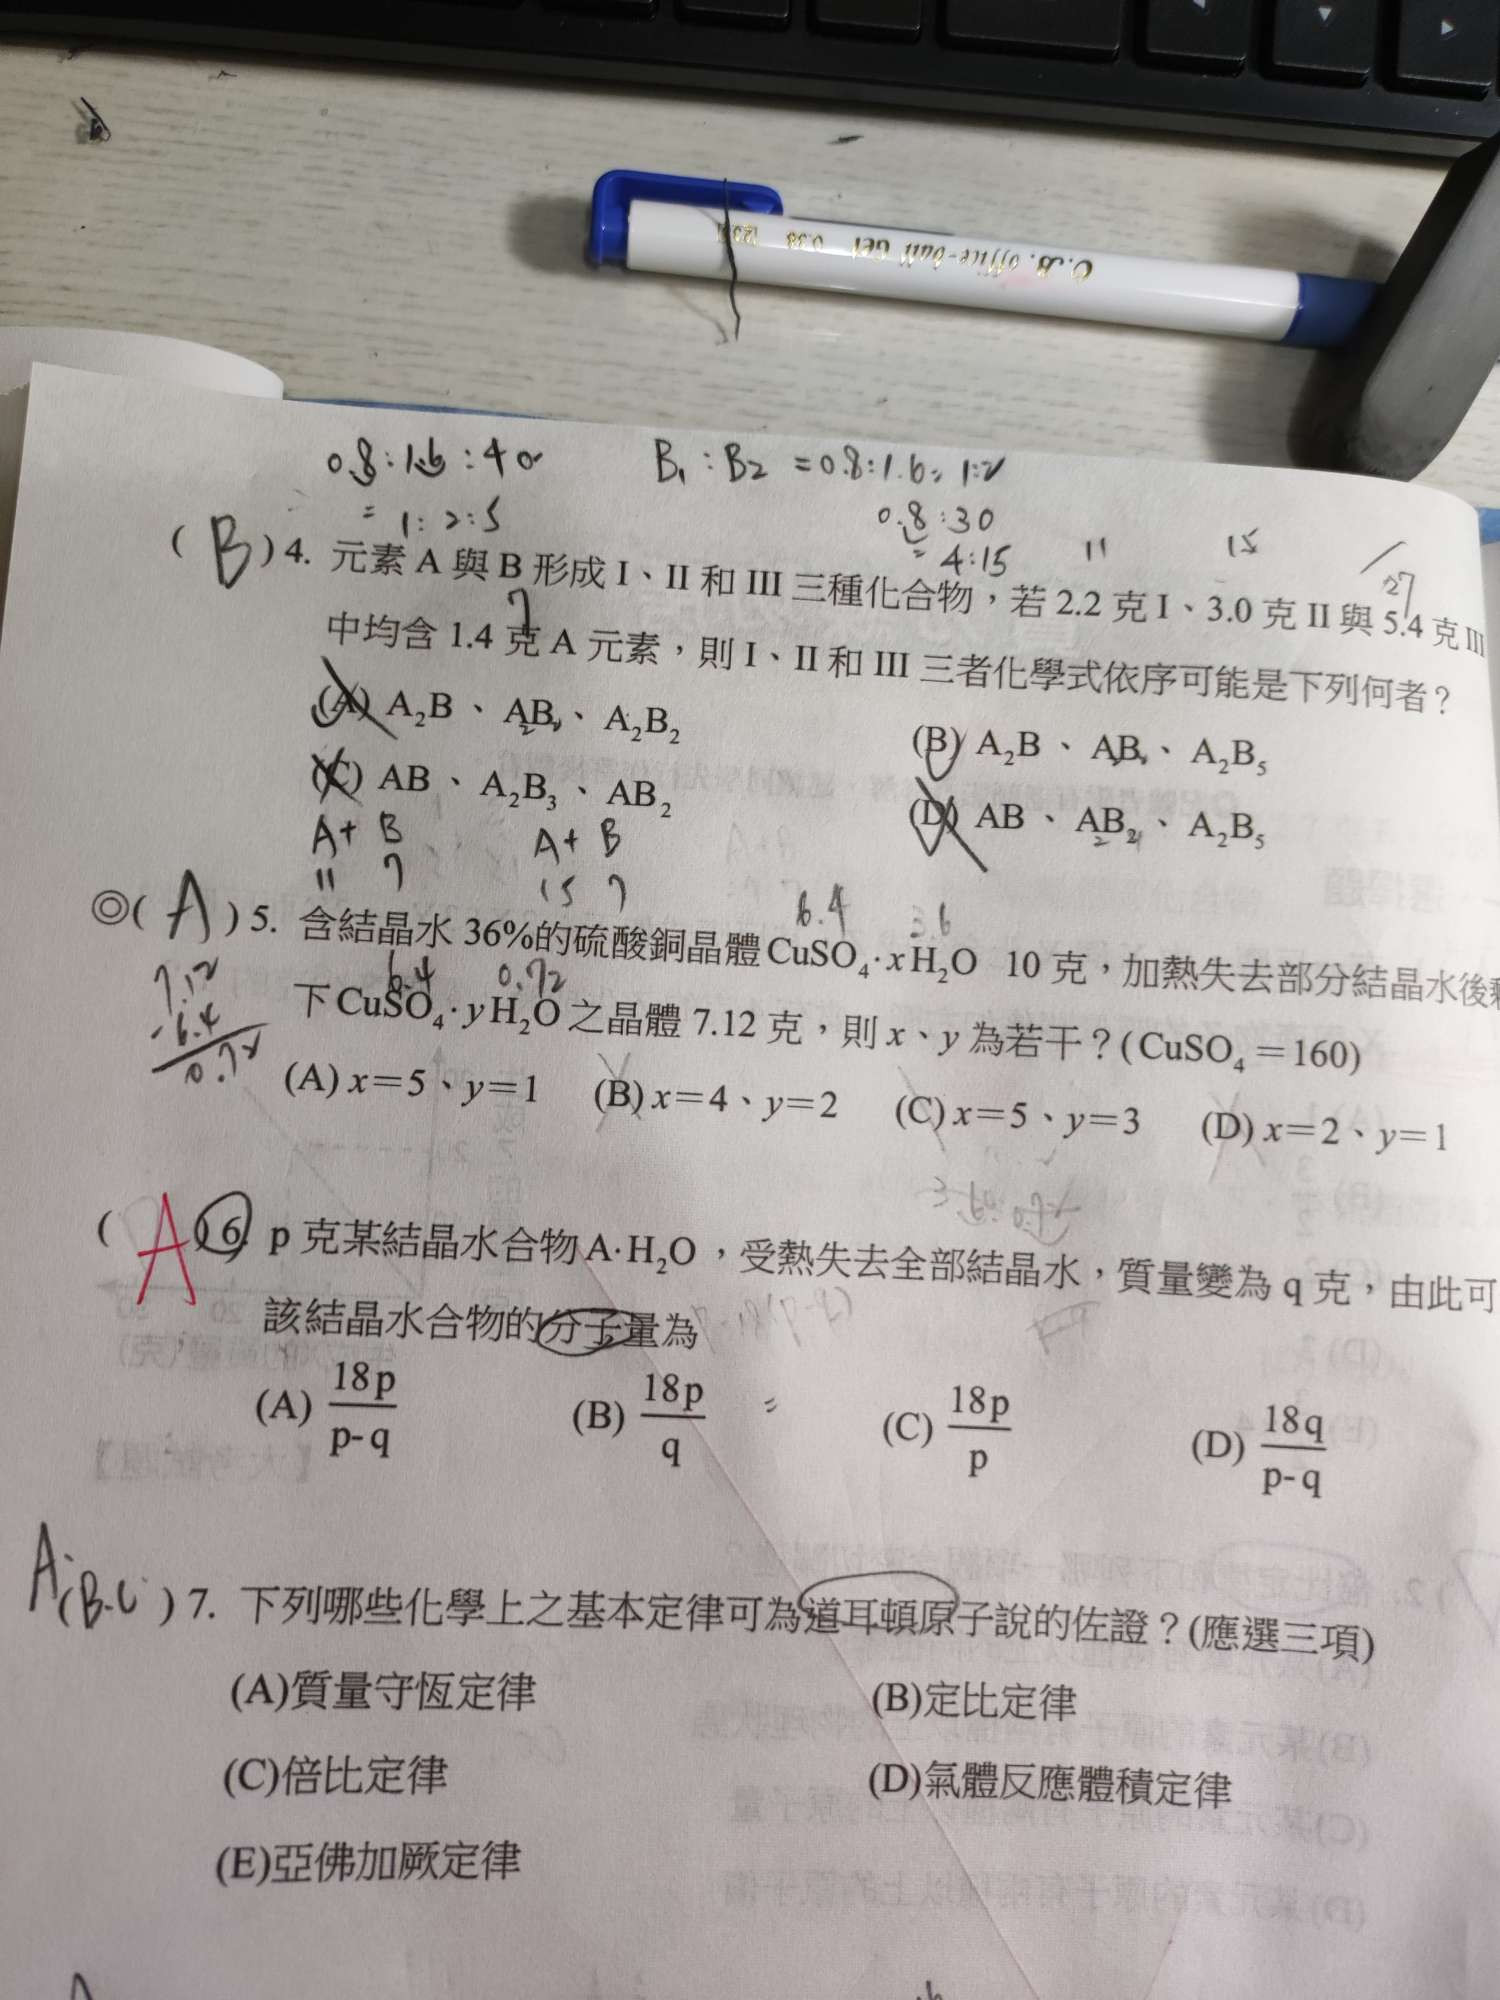 O.B. office-ball Gel 0.38
0.8:1.6:40 B₁:B₂ =0.8:1.6=1:2
= 1:2:5 0.8:30
= 4:15 11 15 27
(B)4. 元素 A 與 B 形成 I、II 和 III 三種化合物,若 2.2 克 I、3.0 克 II 與 5.4 克 III
7
中均含 1.4 克 A 元素,則 I、II 和 III 三者化學式依序可能是下列何者?
(A) A₂B、AB₂、A₂B₂ (B) A₂B、AB、A₂B₅
(C) AB、A₂B₃、AB₂ (D) AB、AB₂、A₂B₅
A+B A+B
11 7 15 7
6.4 3.6
◎(A)5. 含結晶水 36%的硫酸銅晶體CuSO₄·xH₂O 10 克,加熱失去部分結晶水後
6.4 0.72
下CuSO₄·yH₂O之晶體 7.12 克,則 x、y 為若干?(CuSO₄=160)
7.12
-6.4
0.72
(A) x=5、y=1 (B) x=4、y=2 (C) x=5、y=3 (D) x=2、y=1
(A)6. p 克某結晶水合物A·H₂O,受熱失去全部結晶水,質量變為 q 克,由此可
該結晶水合物的分子量為
(A) 18p/p-q (B) 18p/q = (C) 18p/p (D) 18q/p-q
A.
(B.C)7. 下列哪些化學上之基本定律可為道耳頓原子說的佐證?(應選三項)
(A)質量守恆定律 (B)定比定律
(C)倍比定律 (D)氣體反應體積定律
(E)亞佛加厥定律